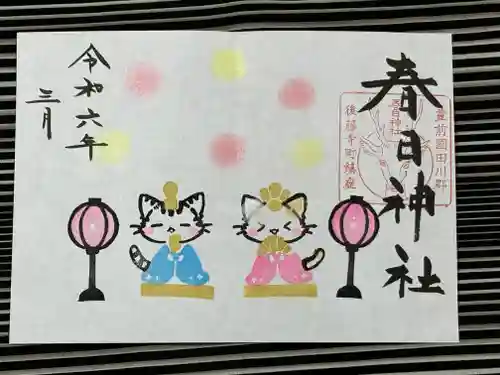 春日神社
豊前國田川郡
春日神社
後藤寺町鎮座
令和六年
三月